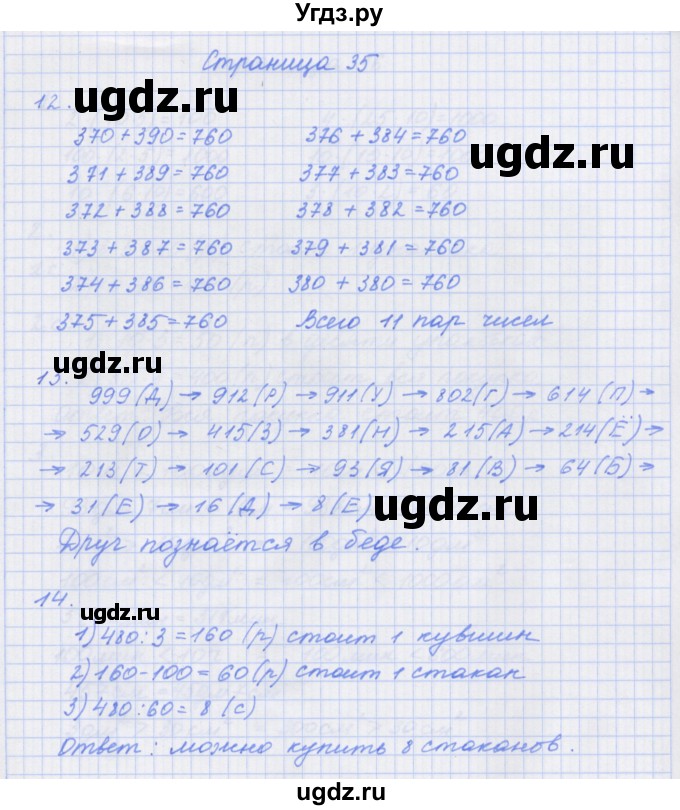 Угдз.ру
Страница 35
12.
ugdz.ru
ugdz.ru
370 + 390 = 760 376 + 384 = 760
371 + 389 = 760 377 + 383 = 760
372 + 388 = 760 378 + 382 = 760
373 + 387 = 760 379 + 381 = 760
374 + 386 = 760 380 + 380 = 760
375 + 385 = 760 Всего 11 пар чисел
13.
999 (Д) → 912 (Р) → 911 (У) → 802 (Г) → 614 (П) →
→ 529 (О) → 415 (З) → 381 (Н) → 215 (А) → 214 (Ё) →
→ 213 (Т) → 101 (С) → 93 (Я) → 81 (В) → 64 (Б) →
→ 31 (Е) → 16 (Д) → 8 (Е)
ugdz.ru
Друг познаётся в беде.
14.
ugdz.ru
1) 480 : 3 = 160 (р) стоит 1 кувшин
2) 160 - 100 = 60 (р) стоит 1 стакан
3) 480 : 60 = 8 (с)
Ответ : можно купить 8 стаканов.
ugdz.ru